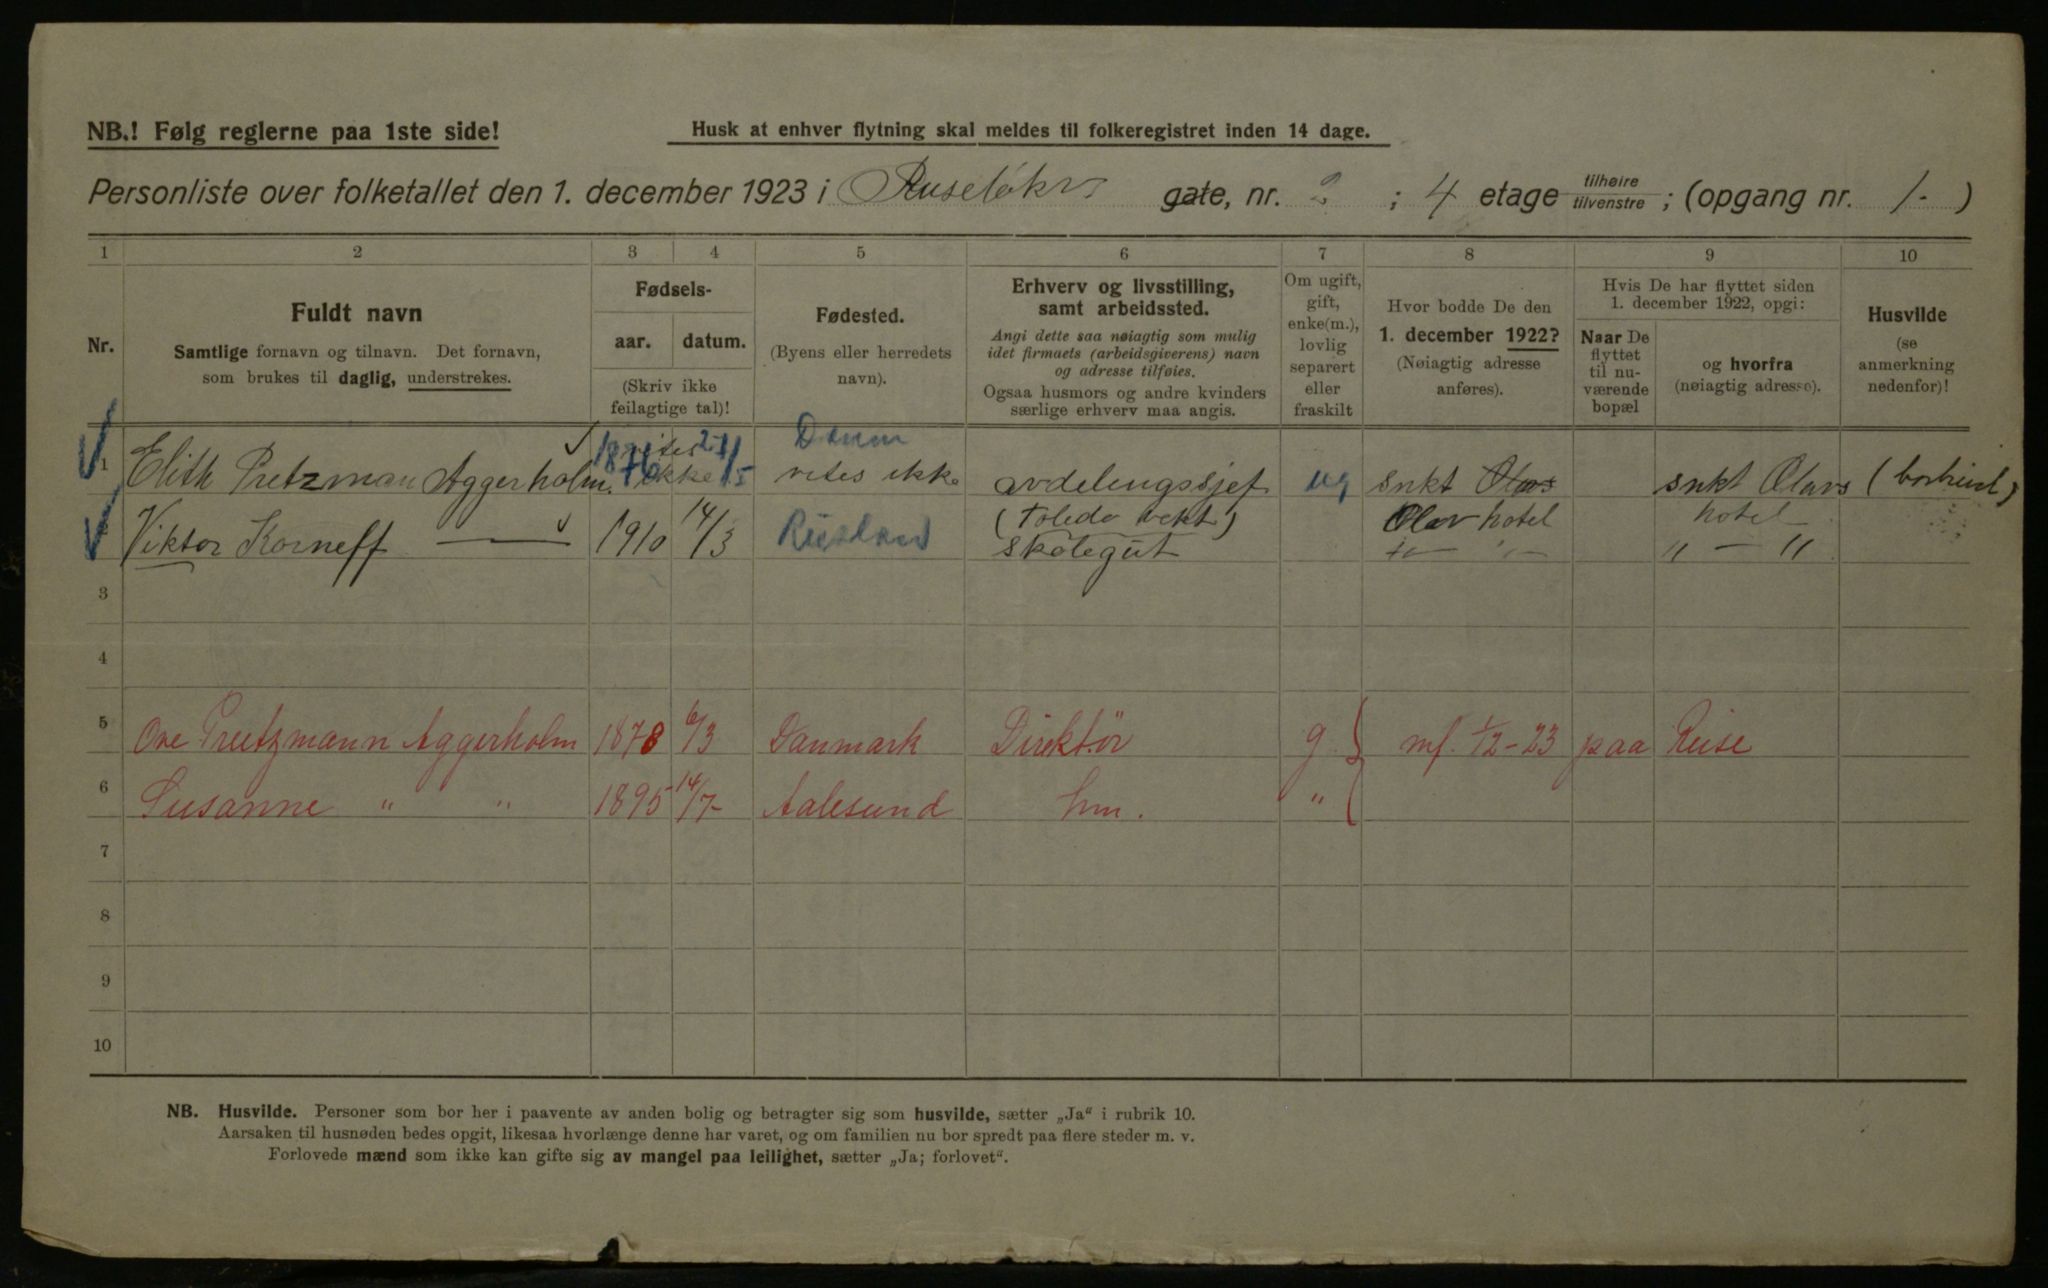 NB.! Følg reglerne paa 1ste side!
Husk at enhver flytning skal meldes til folkeregistret inden 14 dage.
Personliste over folketallet den 1. december 1923 i Ruseløkv gate, nr. 2 ; 4 etage tilhøire tilvenstre ; (opgang nr. 1 - )
1 2 3 4 5 6 7 8 9 10
Nr.
Fuldt navn
Samtlige fornavn og tilnavn. Det fornavn,
som brukes til daglig, understrekes.
Fødsels-
aar. datum.
(Skriv ikke
feilagtige tal)!
Fødested.
(Byens eller herredets
navn).
Erhverv og livsstilling,
samt arbeidssted.
Angi dette saa nøiagtig som mulig
idet firmaets (arbeidsgiverens) navn
og adresse tilføies.
Ogsaa husmors og andre kvinders
særlige erhverv maa angis.
Om ugift,
gift,
enke(m.),
lovlig
separert
eller
fraskilt
Hvor bodde De den
1. december 1922?
(Nøiagtig adresse
anføres).
Hvis De har flyttet siden
1. december 1922, opgi:
Naar De
flyttet
til nu-
værende
bopæl
og hvorfra
(nøiagtig adresse).
Husvilde
(se
anmerkning
nedenfor)!
1 Elith Pretzman Aggerholm. vites ikke 1876 Danm vites ikke avdelingssjef ug snkt Olavs snkt Olavs
(Toledo vekt) Olav hotel hotel
Viktor Korneff 1910 14/3 Russland skolegut " — " " — "
3
4
5 Ove Preetzmann Aggerholm 1878 6/3 Danmark Direktör g mf. 1/2-23 paa Reise
6 Susanne " " 1895 14/7 Aalesund hm. "
7
8
9
10
NB. Husvilde. Personer som bor her i paavente av anden bolig og betragter sig som husvilde, sætter „Ja“ i rubrik 10.
Aarsaken til husnøden bedes opgit, likesaa hvorlænge denne har varet, og om familien nu bor spredt paa flere steder m. v.
Forlovede mænd som ikke kan gifte sig av mangel paa leilighet, sætter „Ja; forlovet“.